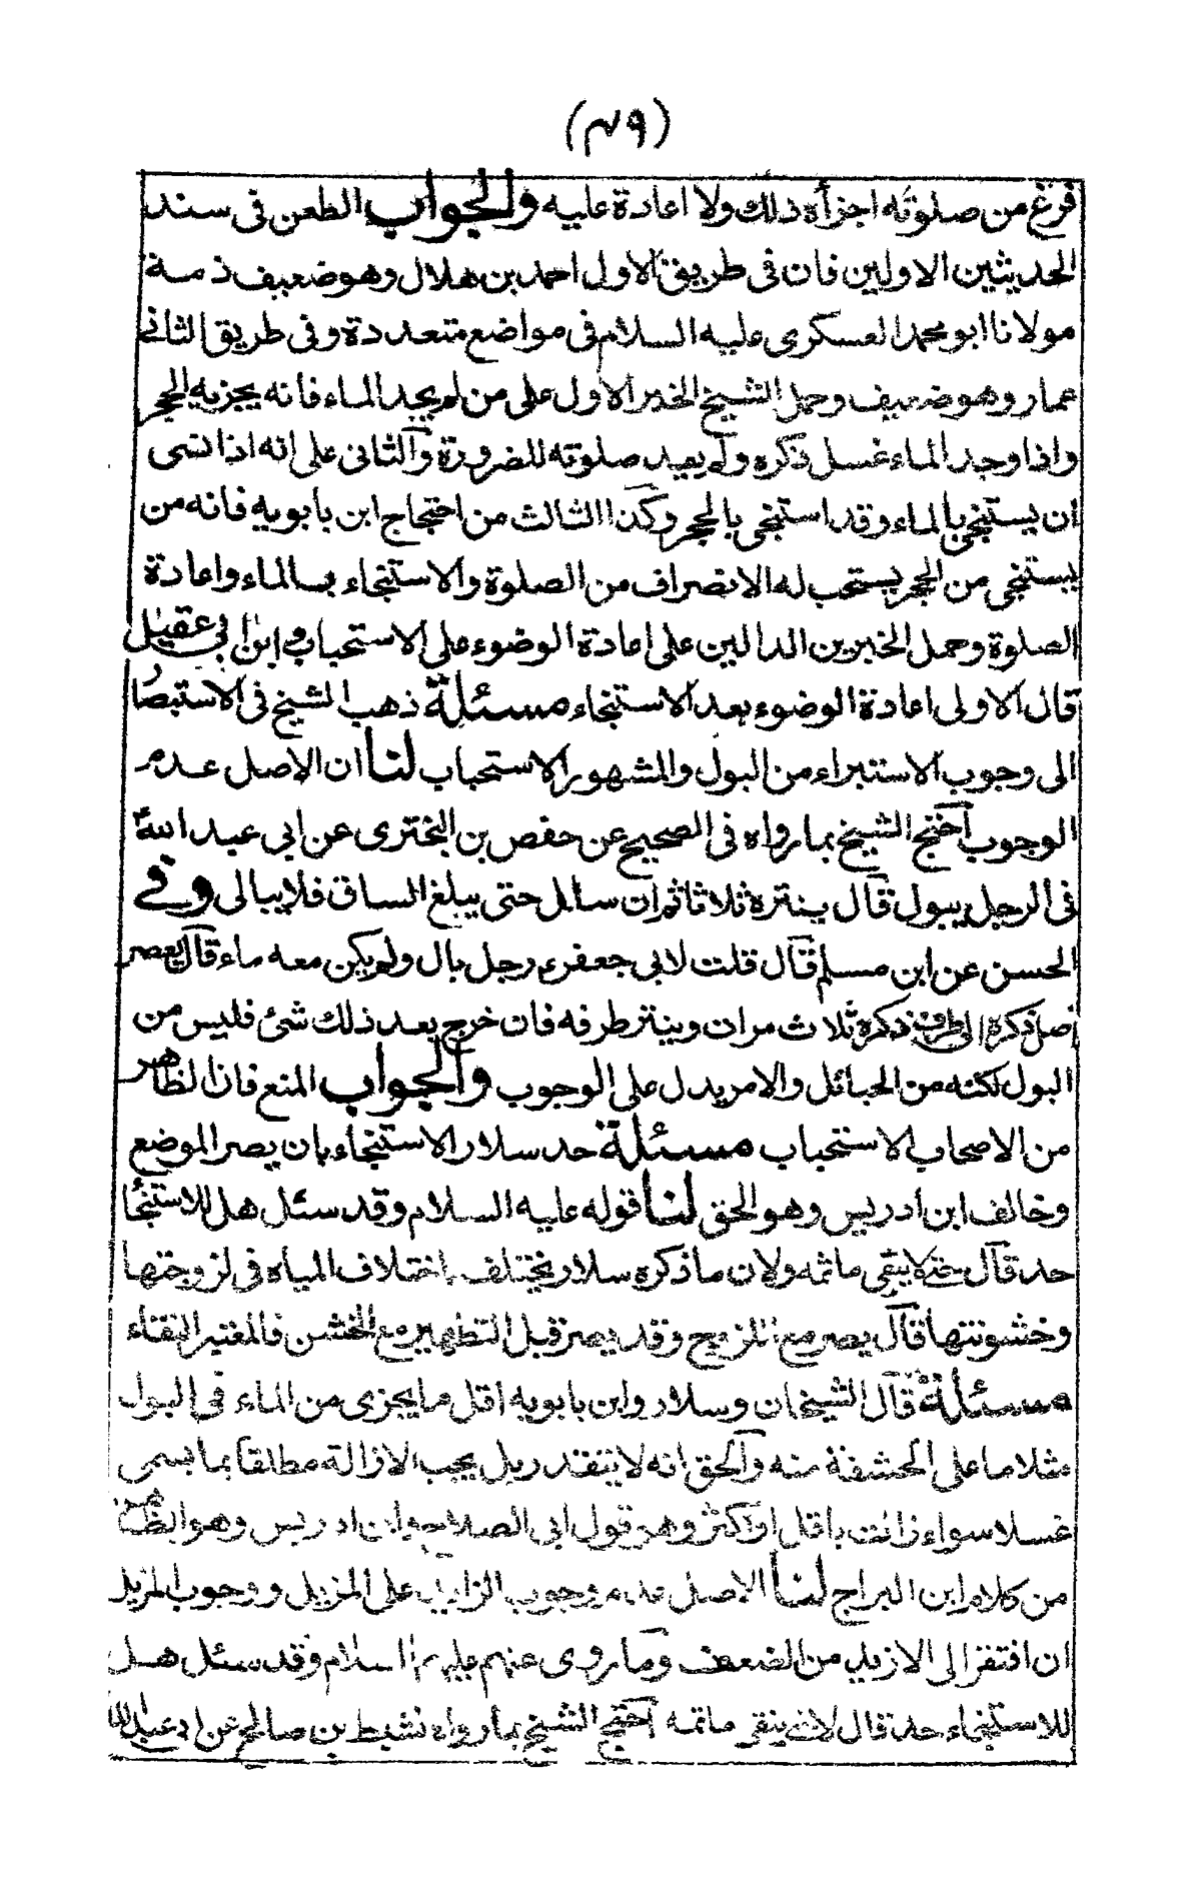 (٣٩)
فرغ من صلوته اجزأه ذلك ولا اعادة عليه والجواب الطعن فى سند
الحديثين الاولين فان فى طريق الاول احمد بن هلال وهو ضعيف ذمه
مولانا ابو محمد العسكرى عليه السلام فى مواضع متعددة وفى طريق الثانى
عمار وهو ضعيف وحمل الشيخ الخبر الاول على من لم يجد الماء فانه يجزيه الحجر
واذا وجد الماء غسل ذكره ولم يعيد صلوته للضرورة والثانى على انه اذا نسى
ان يستنجى بالماء وقد استنجى بالحجر وكذا الثالث من احتجاج ابن بابويه فانه من
يستنجى من الحجر يستحب له الانصراف من الصلوة والاستنجاء بالماء واعادة
الصلوة وحمل الخبرين الدالين على اعادة الوضوء على الاستحباب وابن ابى عقيل
قال الاولى اعادة الوضوء بعد الاستنجاء مسئلة ذهب الشيخ فى الاستبصا
الى وجوب الاستبراء من البول والمشهور الاستحباب لنا ان الاصل عدم
الوجوب احتج الشيخ بما رواه فى الصحيح عن حفص بن البخترى عن ابى عبد الله
فى الرجل يبول قال ينتره ثلاثا ثم ان سال حتى يبلغ الساق فلا يبالى وفى
الحسن عن ابن مسلم قال قلت لابى جعفر ع رجل بال ولم يكن معه ماء قال يعصر
اصل ذكره الى طرف ذكره ثلاث مرات وينتر طرفه فان خرج بعد ذلك شئ فليس من
البول لكنه من الحبائل والامر يدل على الوجوب والجواب المنع فان الظاهر
من الاصحاب الاستحباب مسئلة حد سلار الاستنجاء بان يصر الموضع
وخالف ابن ادريس وهو الحق لنا قوله عليه السلام وقد سئل هل للاستنجا
حد قال حتى ينقى ماثمه ولان ما ذكره سلار يختلف باختلاف المياه فى لزوجتها
وخشونتها قال يصر مع اللزج وقد يصر قبل التطهير مع الخشن فالمعتبر النقاء
مسئلة قال الشيخان وسلار وابن بابويه اقل ما يجزى من الماء فى البول
مثلا ما على الحشفة منه والحق انه لا يتقدر بل يجب الازالة مطلقا بما يسمى
غسلا سواء زالت باقل او اكثر وهو قول ابى الصلاح وابن ادريس وهو الظاهر
من كلام ابن البراج لنا الاصل عدم وجوب الزايد على المزيل ووجوب المزيل
ان افتقر الى الازيد من الضعف وما روى عنهم عليهم السلام وقد سئل هل
للاستنجاء حد قال لا حتى ينقى ماثمه احتج الشيخ بما رواه نشيط بن صالح عن ابى عبد الله